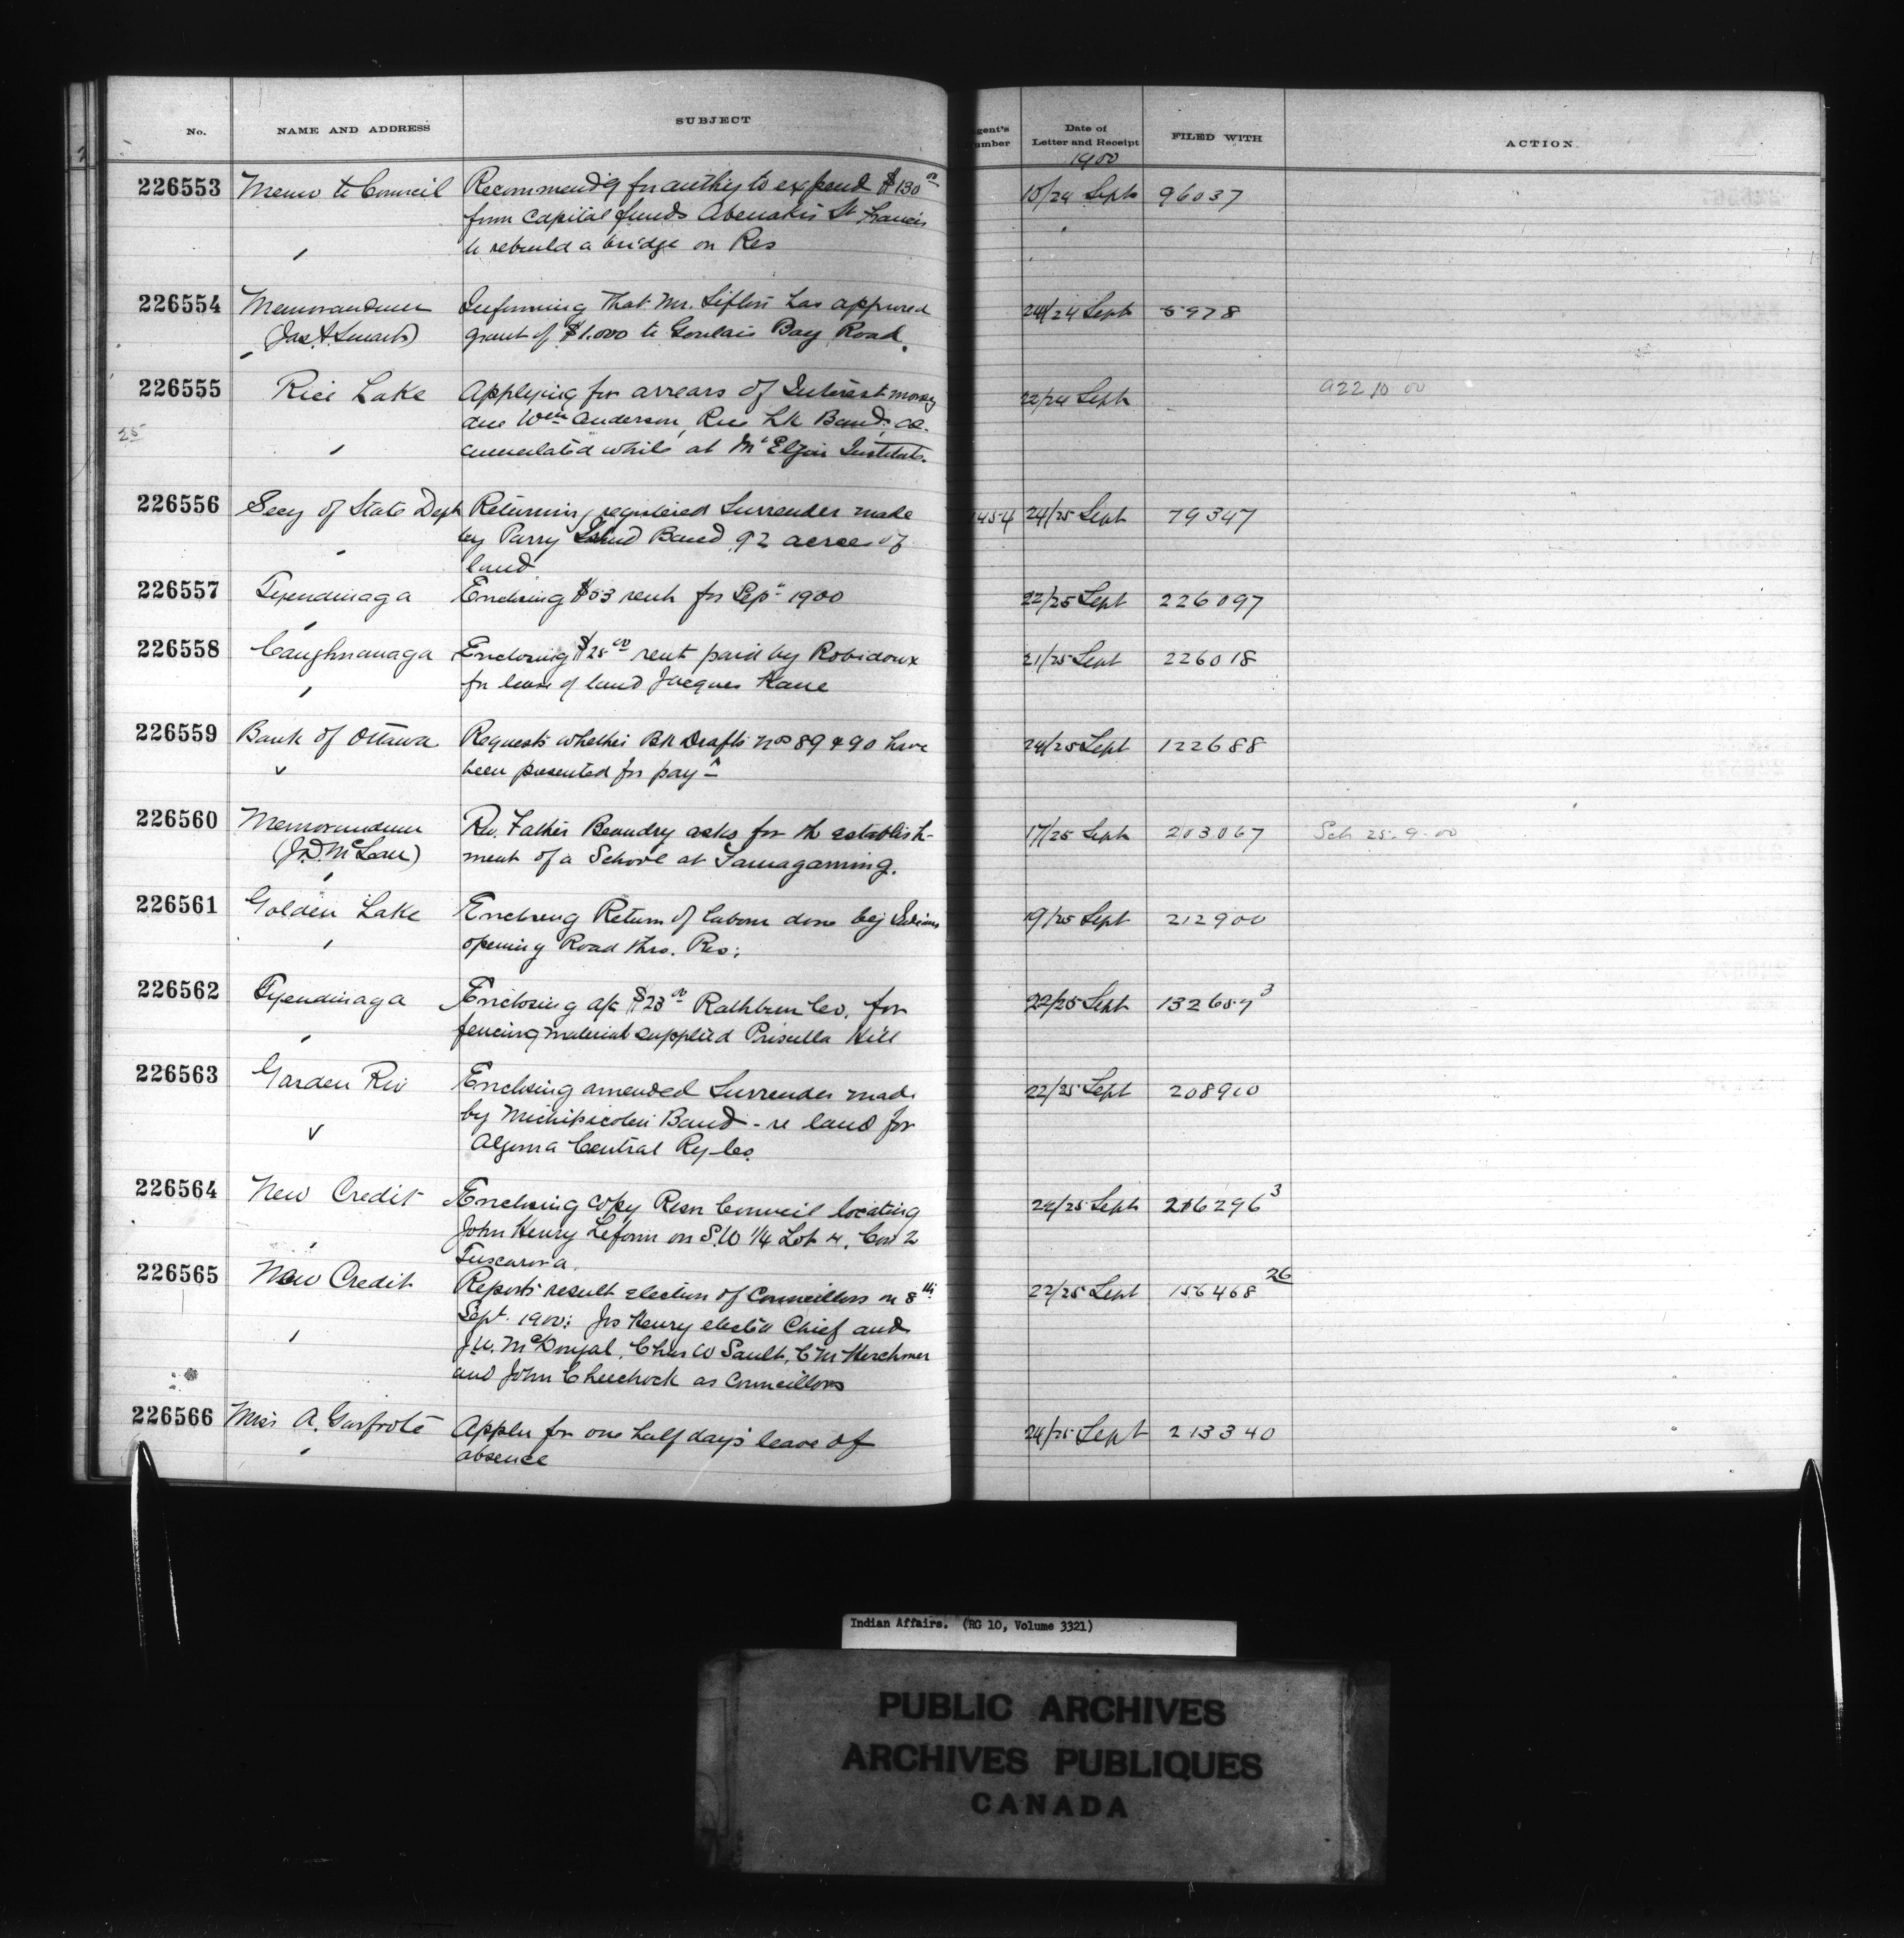 No. NAME AND ADDRESS SUBJECT gent's umber Date of Letter and Receipt FILED WITH ACTION
1900
226553 Memo to Council Recommend'g for authy to expend $130 00 10/24 Sept 96037
from capital funds Abenakis St Francis
to rebuild a bridge on Res
226554 Memorandum Informing that Mr. Sifton has approved 24/24 Sept 5978
(Jas A Smart) grant of $1.000 to Goulais Bay Road.
226555 Rice Lake Applying for arrears of Interest money 22/24 Sept a22 10 00
25 due Wm Anderson, Rice Lk Band, ac-
cumulated while at Mt Elgin Institute.
226556 Secy of State Dept Returning registered Surrender made 1454 24/25 Sept 79347
by Parry Island Band 92 acres of
land
226557 Tyendinaga Enclosing $53 rent for Sept 1900 22/25 Sept 226097
226558 Caughnawaga Enclosing $25 00 rent paid by Robidoux 21/25 Sept 226018
for lease of land Jacques Kane
226559 Bank of Ottawa Requests whether Bk Drafts Nos 89 & 90 have 24/25 Sept 122688
been presented for payt
226560 Memorandum Rev. Father Beaudry asks for th establish- 17/25 Sept 203067 Sch 25.9.00
(J.D. McLean) ment of a School at Tamagaming.
226561 Golden Lake Enclosing Return of labour done by Indians 19/25 Sept 212900
opening Road thro. Res:
226562 Tyendinaga Enclosing a/c $23 00 Rathbun Co. for 22/25 Sept 132657 3
fencing material supplied Priscilla Hill
226563 Garden Riv Enclosing amended Surrender made 22/25 Sept 208910
by Michipicoten Band - re land for
Algoma Central Ry Co.
226564 New Credit Enclosing copy Resn Council locating 22/25 Sept 216296 3
John Henry on S.W 1/4 Lot 4, Con 2
Tuscarora.
226565 New Credit Reports result election of Councillors on 8th 22/25 Sept 156468 26
Sept. 1900: Jos Henry elected Chief and
J.W. McDougal, Chas W Sault, C M Herchmer
and John Cheechock as Councillors
226566 Miss A. Applies for one half day's leave of 24/25 Sept 213340
absence
Indian Affairs. (RG 10, Volume 3321)
PUBLIC ARCHIVES
ARCHIVES PUBLIQUES
CANADA